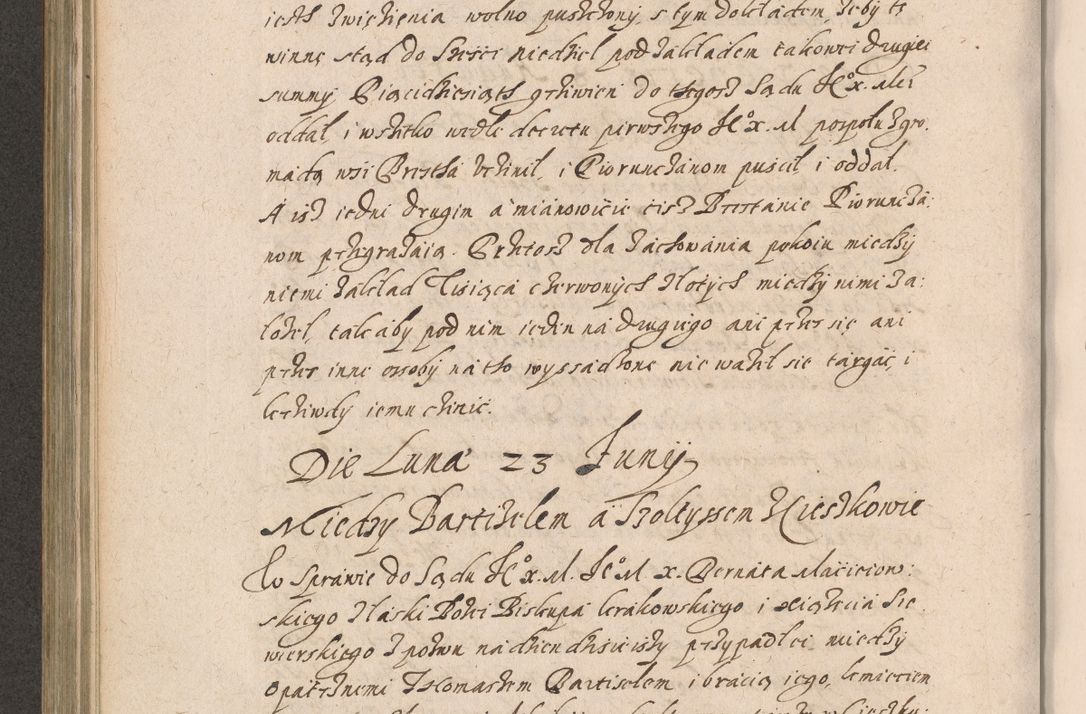 iest z więzienia wolno puszczony, s tym dokładem, żeby te
winnę stąd do sześci niedziel pod zakładem takowei drugiei
summy Piącidziesiąts grziwien do thegosz Sądu Je° x. Mci
oddał, i wszitko wedle decretu pirwszego Je° x. M pospołu z gro:
madą wsi Brzesthá uczinił, i Piorunczanom puscił i oddał.
A isz iedni drugim a mianowicie cisz Brzezanie Piorunczá:
nom przegrażaią. Przetosz dla záchowánia pokoiu miedzy
niemi zakład Tisiąca czerwonych złotych miedzy nimi zá:
łożeł, tak aby pod nim ieden ná drugiego ani przes się ani
przes inne ossoby ná tho wyssádzone nie ważeł się tárgáć, i
krziwdy iemu czinić.
Die Lunæ 23 Junij
Miedzy Bartizelem a Szołtyssem z Cieszkowic
W Sprawie do Sądu Je° x. M. Je° M x. Bernata Maćieiow:
skiego z łaski Bożei Biskupá krakowskiego i xiążecia Sie
wierskiego z pozwu ná dzien dzisieiszy przypadłei miedzy
opátrznemi Thomaszem Bartiselem i bracią iego, kmieciem